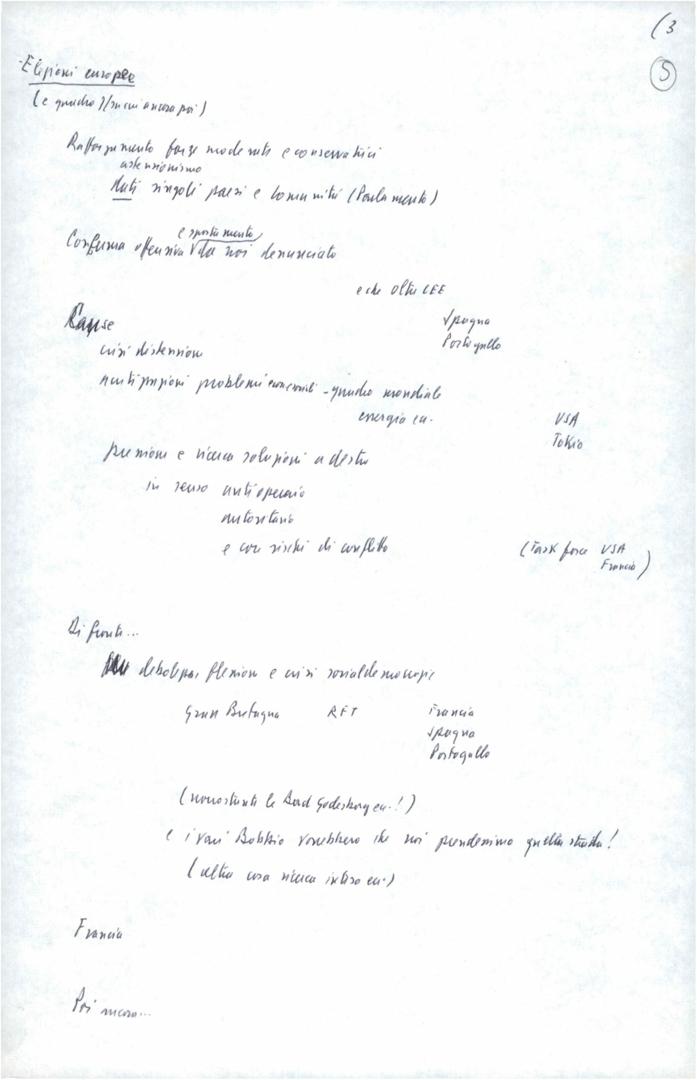 (3
5
- Elezioni europee
(e quadro) (su cui ancora poi)
Rafforzamento forze moderate e conservatrici
astensionismo
Dati singoli paesi e Comunità (Parlamento)
e spostamento
Conferma offensiva da noi denunciato
e che oltre CEE
Spagna
Portogallo
Cause
crisi distensione
problemi economici - quadro mondiale
energia ecc.
USA
Tokio
pressione e ricerca soluzioni a destra
in senso antioperaio
autoritario
e con rischi di conflitto
(Task force USA
Francia)
Di fronte...
debolezza, flessione e crisi socialdemocrazie
Gran Bretagna RFT Francia
Spagna
Portogallo
(nonostante le Bad Godesberg ecc.!)
e i vari Bobbio vorrebbero che noi prendessimo quella strada!
(altra cosa ricerca intesa ecc.)
Francia
Poi ancora...